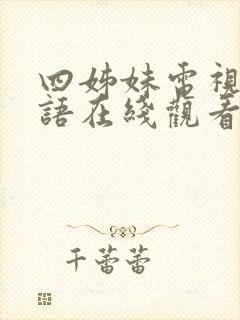 四姊妹電視
語在綫觀看
千蕾蕾